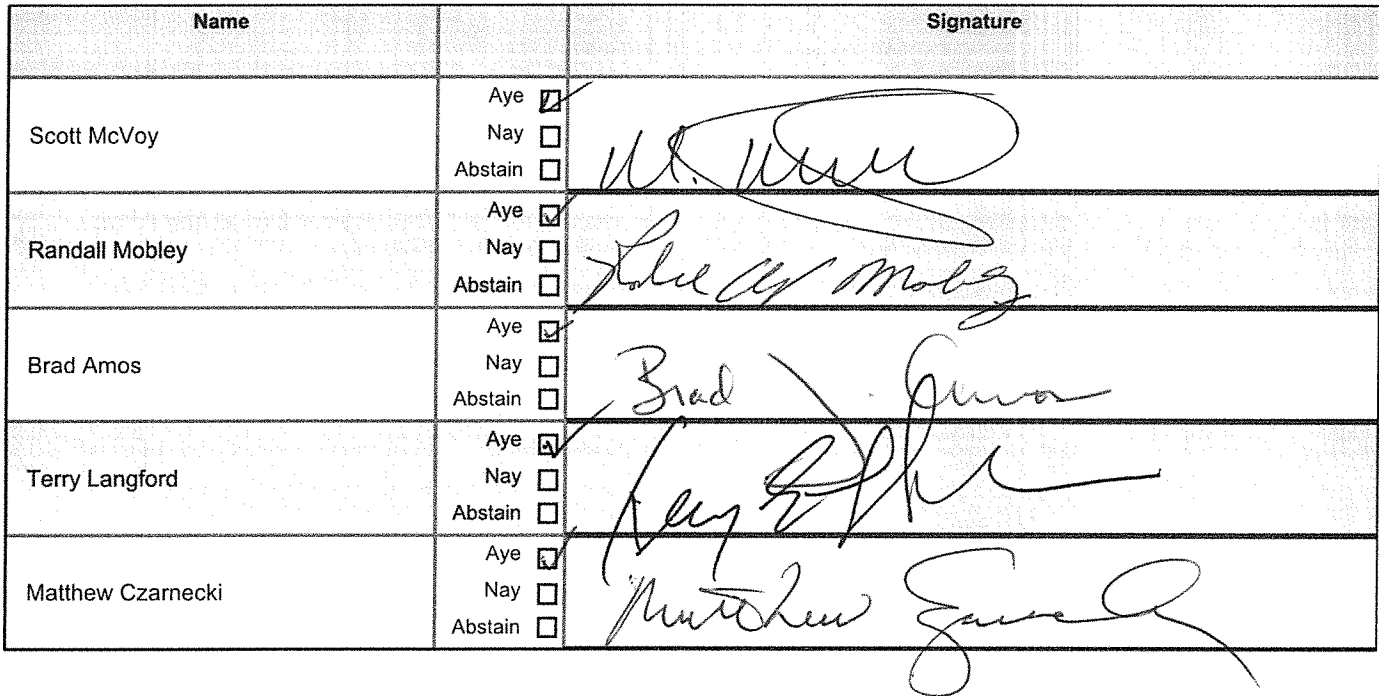 Name Signature
Scott McVoy
Aye ☑
Nay ☐
Abstain ☐
Randall Mobley
Aye ☑
Nay ☐
Abstain ☐
Mobley
Brad Amos
Aye ☑
Nay ☐
Abstain ☐
Brad J. Amos
Terry Langford
Aye ☑
Nay ☐
Abstain ☐
Matthew Czarnecki
Aye ☑
Nay ☐
Abstain ☐
Matthew Czarnecki